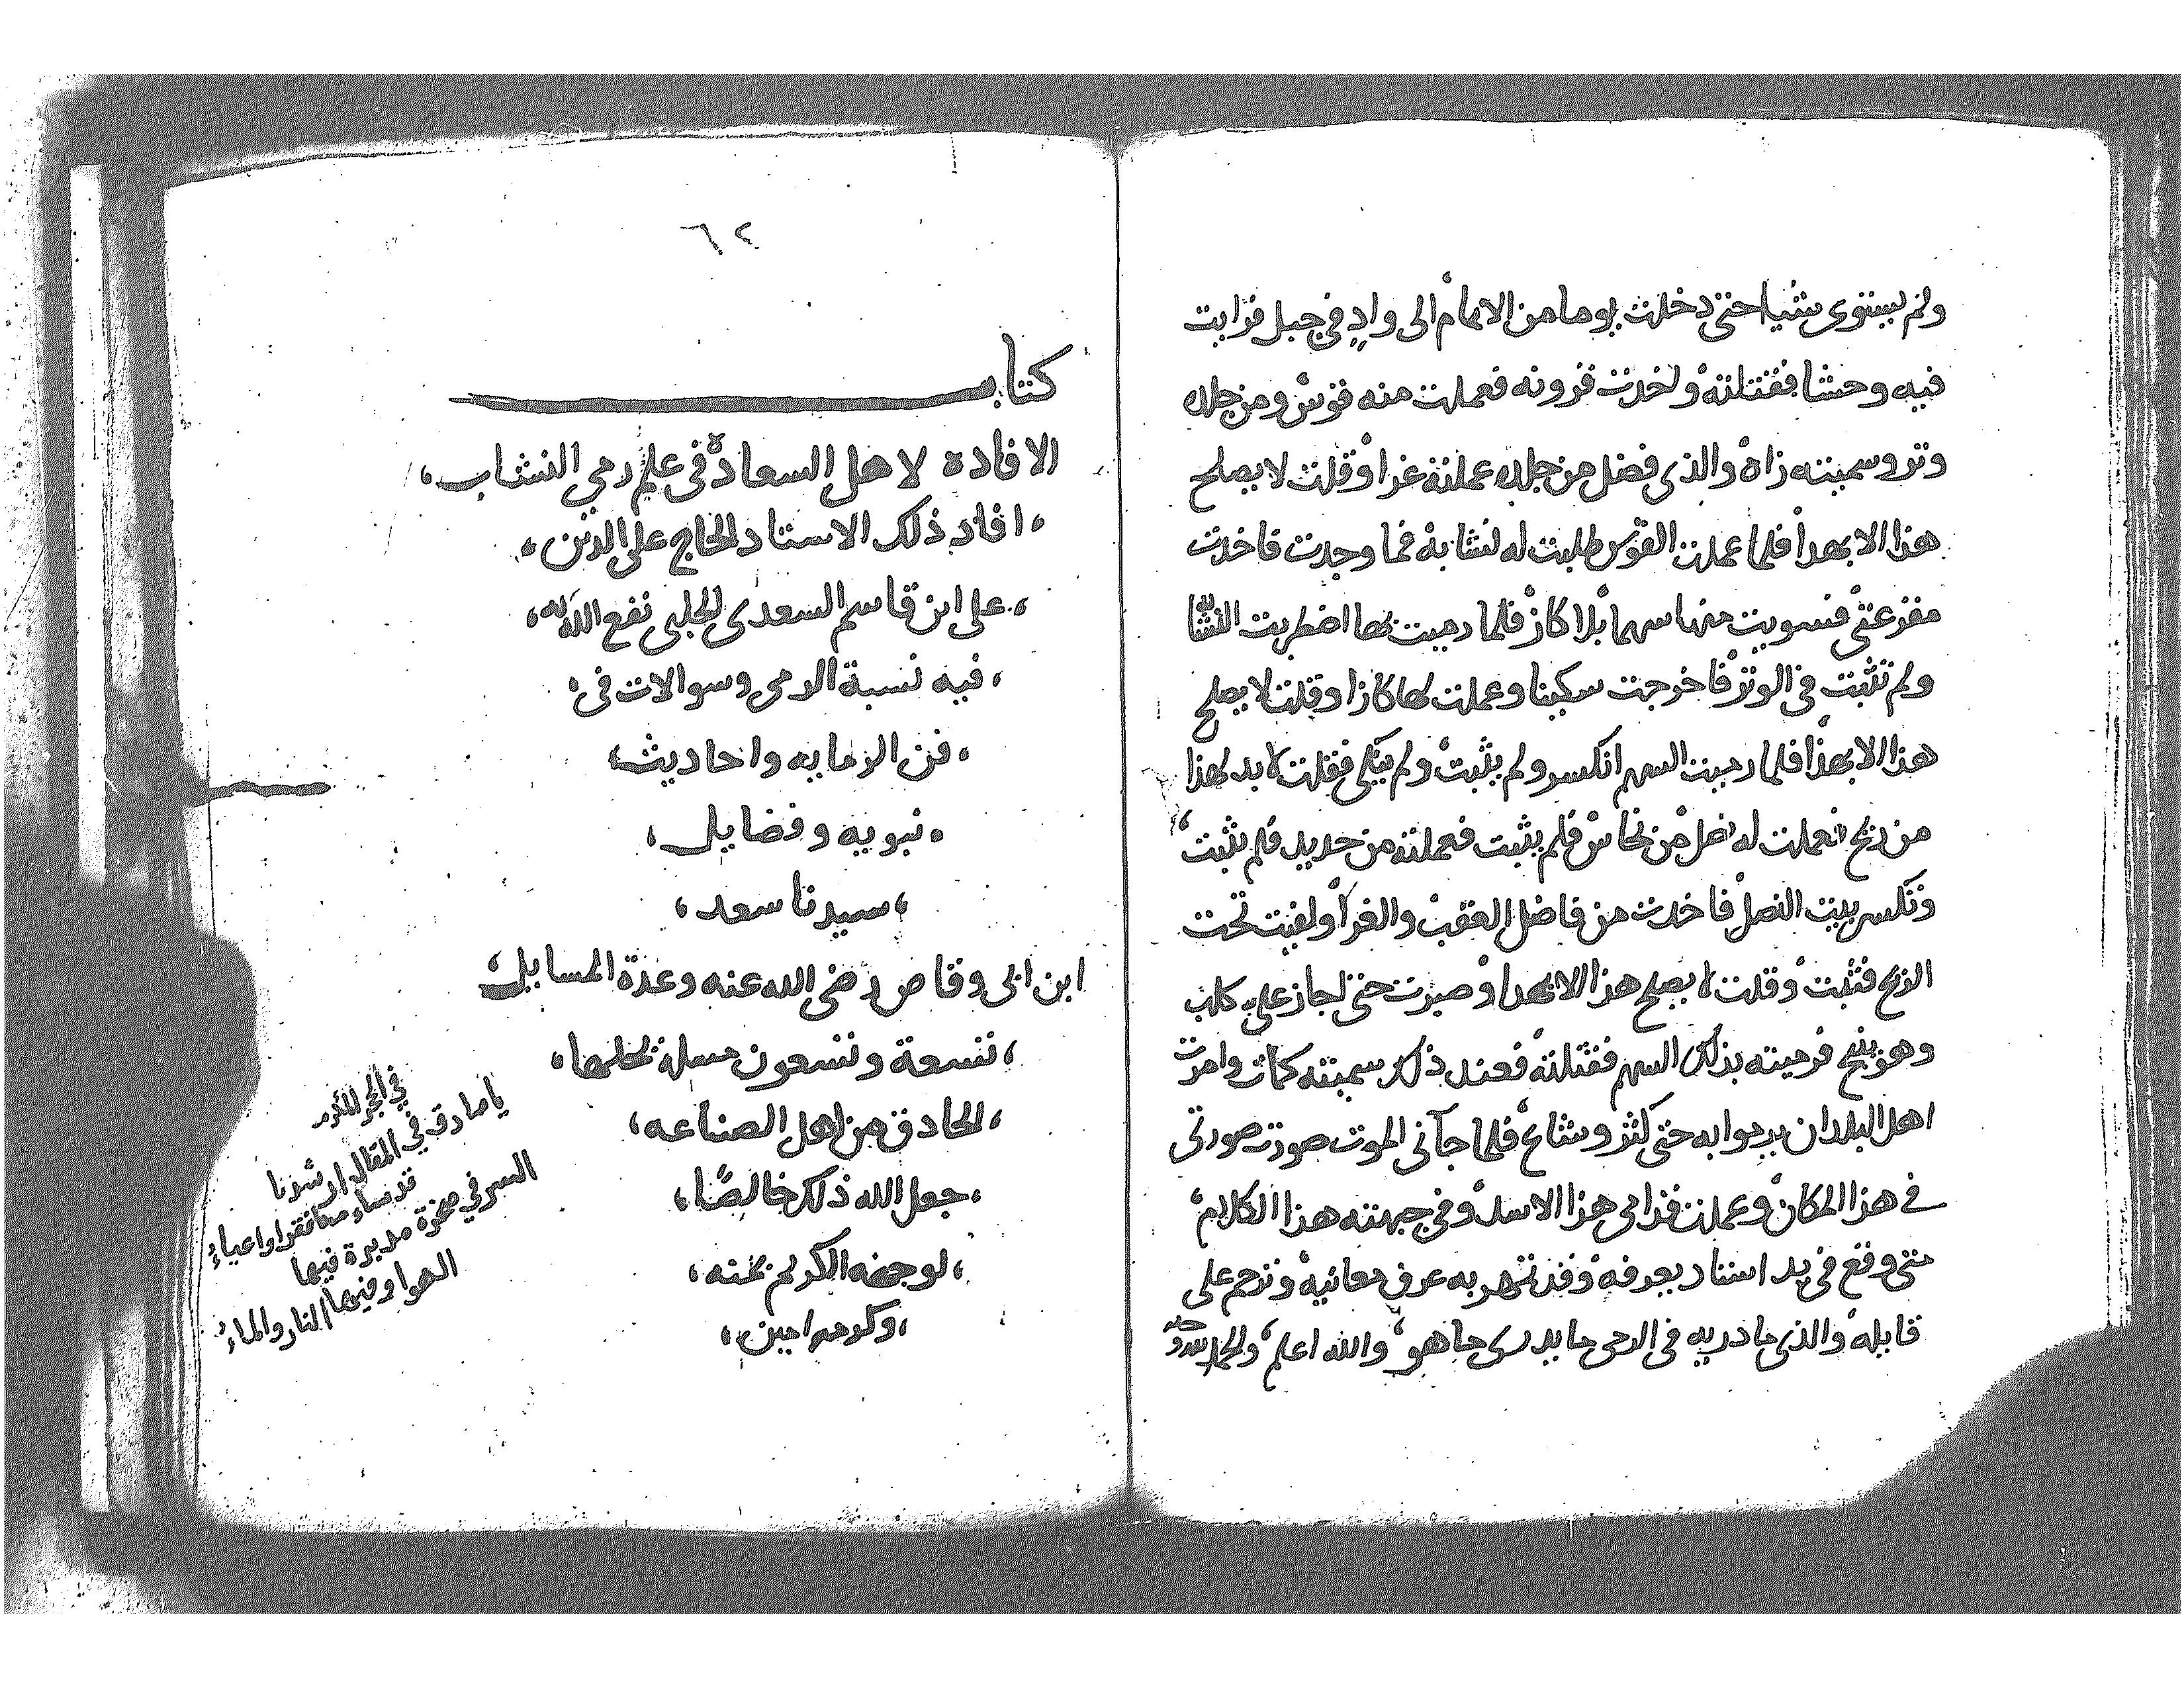 ولم يستوى شيا حتى دخلت يوما من الايام الى وادٍ في جبل فرايت
فيه وحشا فقتلته واخدت قرونه فعملت منه قوس ومن جلده
وتر وسميته زاه والذي فضل من جلده عملته غرا وقلت لا يصلح
هذا الا بهدا فلما عملت القوس طلبت له نشابة فما وجدت فاخدت
فسويت منها سهما بلا كاز فلما رميت بها اضطربت النشابه
ولم تثبت في الوتر فاخرجت سكينا وعملت لها كازا وقلت لا يصلح
هذا الا بهذا فلما رميت السهم انكسر ولم يثبت ولم ينكي فقلت لا بد لهذا
من زج فعملت له نصل من نحاس فلم يثبت فعملته من حديد فلم يثبت
وتكسر بيت النصل فاخدت من فاضل العقب والغرا ولفيت تحت
الزج فثبت وقلت لا يصلح هذا الا بهدا وصبرت حتى لجاز عليه كلب
وهو ينبح فرميته بذلك السهم فقتلته فعند ذلك سميته كمان وامرت
اهل البلدان يرموا به حتى كثر وشاع فلما جآني الموت صورت صورتي
في هذا المكان وعملت قدامى هذا الاسد وفي جبهته هذا الكلام
متى وقع في يد استاد يعرفه وقد تمهر به عرف معانيه وترحم على
قايله والذي ما دريه في الرمى ما يدرى ما هو والله اعلم والحمد لله وحده
٦٢
كتاب
الافاده لاهل السعادة في علم رمي النشاب
افاد ذلك الاستاد الحاج على الدين
على ابن قاسم السعدى الحلبى نفع الله به
فيه نسبة الرمى وسوالات في
فن الرمايه واحاديث
نبويه وفضايل
سيدنا سعد
ابن ابى وقاص رضى الله عنه وعدة المسايل
تسعة وتسعون مسلة يحلها
الحادق من اهل الصناعه
جعل الله ذلك خالصًا
لوجهه الكريم بمنه
وكرمه امين
في الحجر المكرم
يا صادق في المقال ارشدنا
قد ساء منا فقرا واعياءُ
السر في صخرة مدبرة فيها
الهوا وفيها النار والماءُ